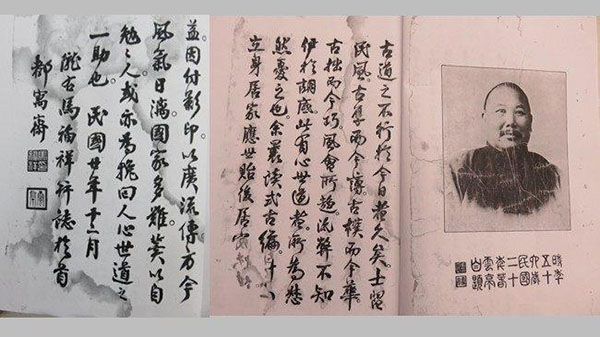 時年
五十
六歲
民國
二十
年
雲亭
自題
古道之不行於今日者久矣士習
民風古厚而今澆古樸而今華
古拙而今巧風會所趨流弊不知
伊於胡底此有心世道者所為
然憂之也余曩讀式古編
立身居家應世貽後居官
益因付影印以廣流傳方今
風氣日漓國家多難冀以自
勉々人或亦為挽回人心世道之
一助也民國廿年十二月
隴右馬福祥誌於首
都寓齋